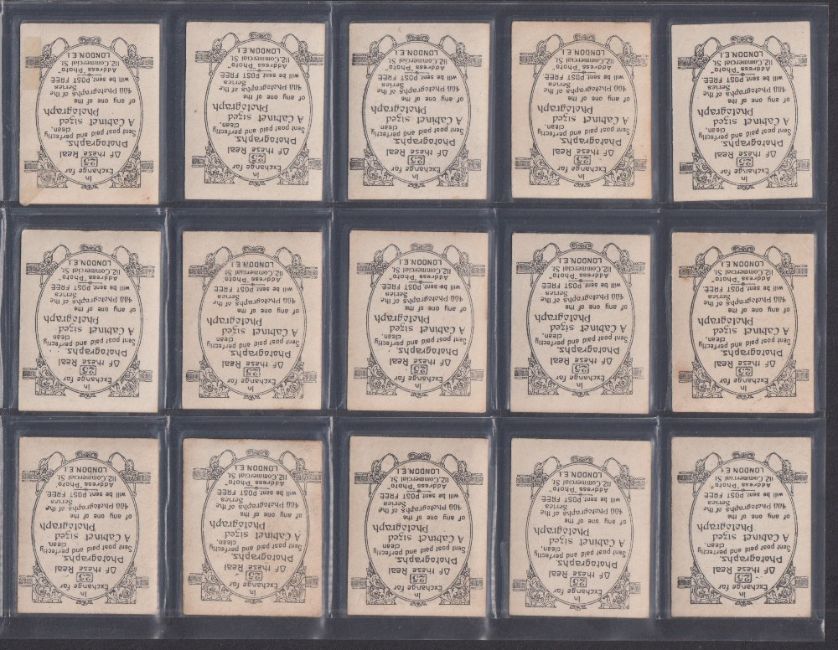 In
Exchange for
25
Of these Real
Photographs,
Sent post paid and perfectly
clean,
A Cabinet sized
Photograph
of any one of the
400 Photographs of the
Series
will be sent POST FREE.
Address "Photo"
112, Commercial St.
LONDON, E.1.
In
Exchange for
25
Of these Real
Photographs,
Sent post paid and perfectly
clean,
A Cabinet sized
Photograph
of any one of the
400 Photographs of the
Series
will be sent POST FREE.
Address "Photo"
112, Commercial St.
LONDON, E.1.
In
Exchange for
25
Of these Real
Photographs,
Sent post paid and perfectly
clean,
A Cabinet sized
Photograph
of any one of the
400 Photographs of the
Series
will be sent POST FREE.
Address "Photo"
112, Commercial St.
LONDON, E.1.
In
Exchange for
25
Of these Real
Photographs,
Sent post paid and perfectly
clean,
A Cabinet sized
Photograph
of any one of the
400 Photographs of the
Series
will be sent POST FREE.
Address "Photo"
112, Commercial St.
LONDON, E.1.
In
Exchange for
25
Of these Real
Photographs,
Sent post paid and perfectly
clean,
A Cabinet sized
Photograph
of any one of the
400 Photographs of the
Series
will be sent POST FREE.
Address "Photo"
112, Commercial St.
LONDON, E.1.
In
Exchange for
25
Of these Real
Photographs,
Sent post paid and perfectly
clean,
A Cabinet sized
Photograph
of any one of the
400 Photographs of the
Series
will be sent POST FREE.
Address "Photo"
112, Commercial St.
LONDON, E.1.
In
Exchange for
25
Of these Real
Photographs,
Sent post paid and perfectly
clean,
A Cabinet sized
Photograph
of any one of the
400 Photographs of the
Series
will be sent POST FREE.
Address "Photo"
112, Commercial St.
LONDON, E.1.
In
Exchange for
25
Of these Real
Photographs,
Sent post paid and perfectly
clean,
A Cabinet sized
Photograph
of any one of the
400 Photographs of the
Series
will be sent POST FREE.
Address "Photo"
112, Commercial St.
LONDON, E.1.
In
Exchange for
25
Of these Real
Photographs,
Sent post paid and perfectly
clean,
A Cabinet sized
Photograph
of any one of the
400 Photographs of the
Series
will be sent POST FREE.
Address "Photo"
112, Commercial St.
LONDON, E.1.
In
Exchange for
25
Of these Real
Photographs,
Sent post paid and perfectly
clean,
A Cabinet sized
Photograph
of any one of the
400 Photographs of the
Series
will be sent POST FREE.
Address "Photo"
112, Commercial St.
LONDON, E.1.
In
Exchange for
25
Of these Real
Photographs,
Sent post paid and perfectly
clean,
A Cabinet sized
Photograph
of any one of the
400 Photographs of the
Series
will be sent POST FREE.
Address "Photo"
112, Commercial St.
LONDON, E.1.
In
Exchange for
25
Of these Real
Photographs,
Sent post paid and perfectly
clean,
A Cabinet sized
Photograph
of any one of the
400 Photographs of the
Series
will be sent POST FREE.
Address "Photo"
112, Commercial St.
LONDON, E.1.
In
Exchange for
25
Of these Real
Photographs,
Sent post paid and perfectly
clean,
A Cabinet sized
Photograph
of any one of the
400 Photographs of the
Series
will be sent POST FREE.
Address "Photo"
112, Commercial St.
LONDON, E.1.
In
Exchange for
25
Of these Real
Photographs,
Sent post paid and perfectly
clean,
A Cabinet sized
Photograph
of any one of the
400 Photographs of the
Series
will be sent POST FREE.
Address "Photo"
112, Commercial St.
LONDON, E.1.
In
Exchange for
25
Of these Real
Photographs,
Sent post paid and perfectly
clean,
A Cabinet sized
Photograph
of any one of the
400 Photographs of the
Series
will be sent POST FREE.
Address "Photo"
112, Commercial St.
LONDON, E.1.